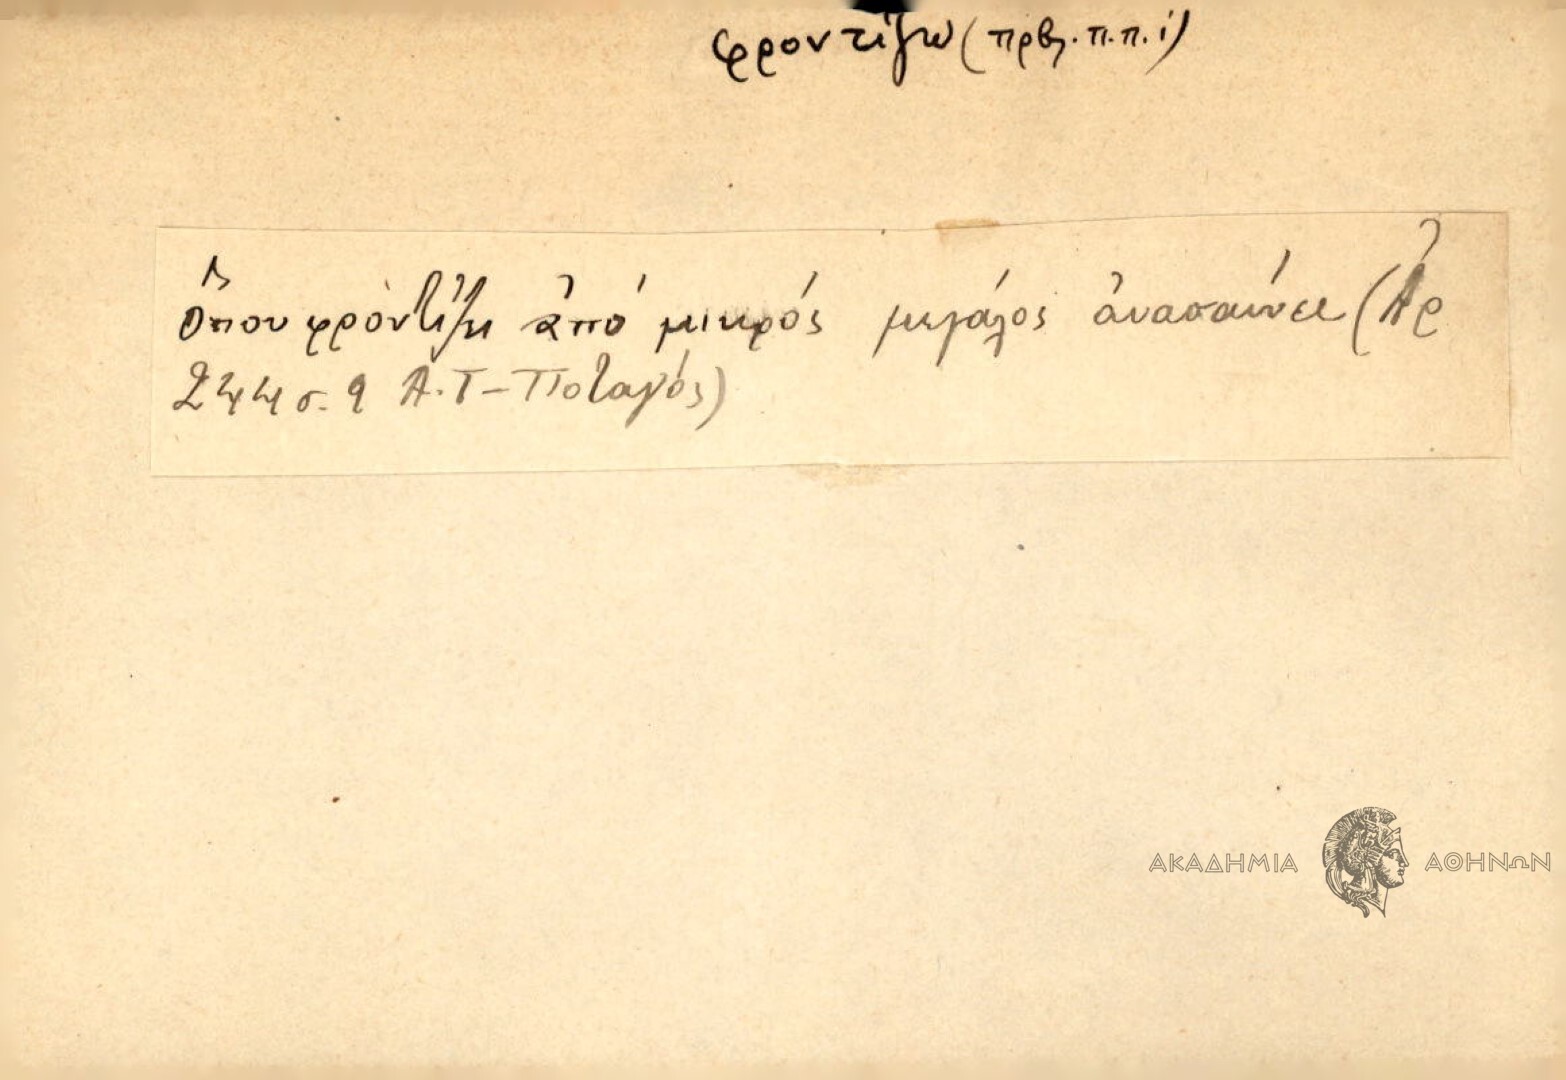 φροντίζω (πρβ. π.π. ί)
Ὅπου φροντίζει ἀπό μικρός μεγάλος ἀνασαίνει (Ἀρ
244 σ. 9 Α.Τ - Ποταγός)
ΑΚΑΔΗΜΙΑ ΑΘΗΝΩΝ